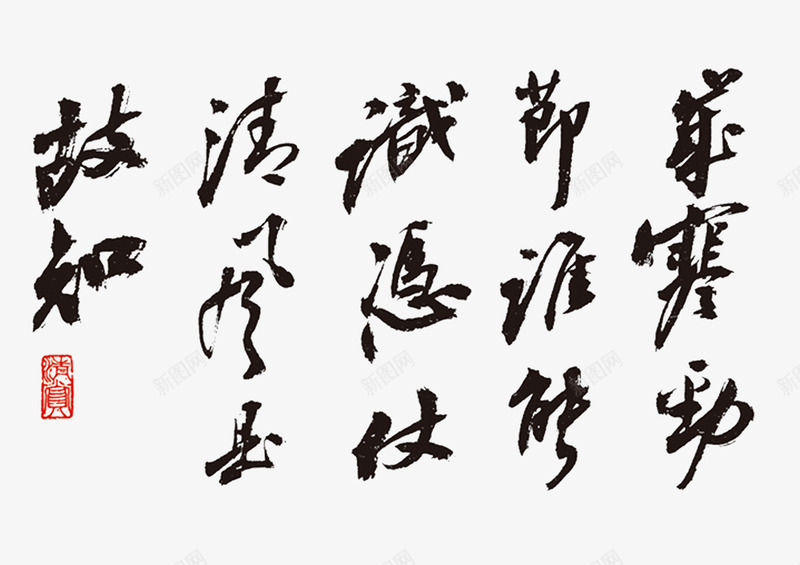 歲寒勁
節誰能
識憑仗
清風是
故知
新图网